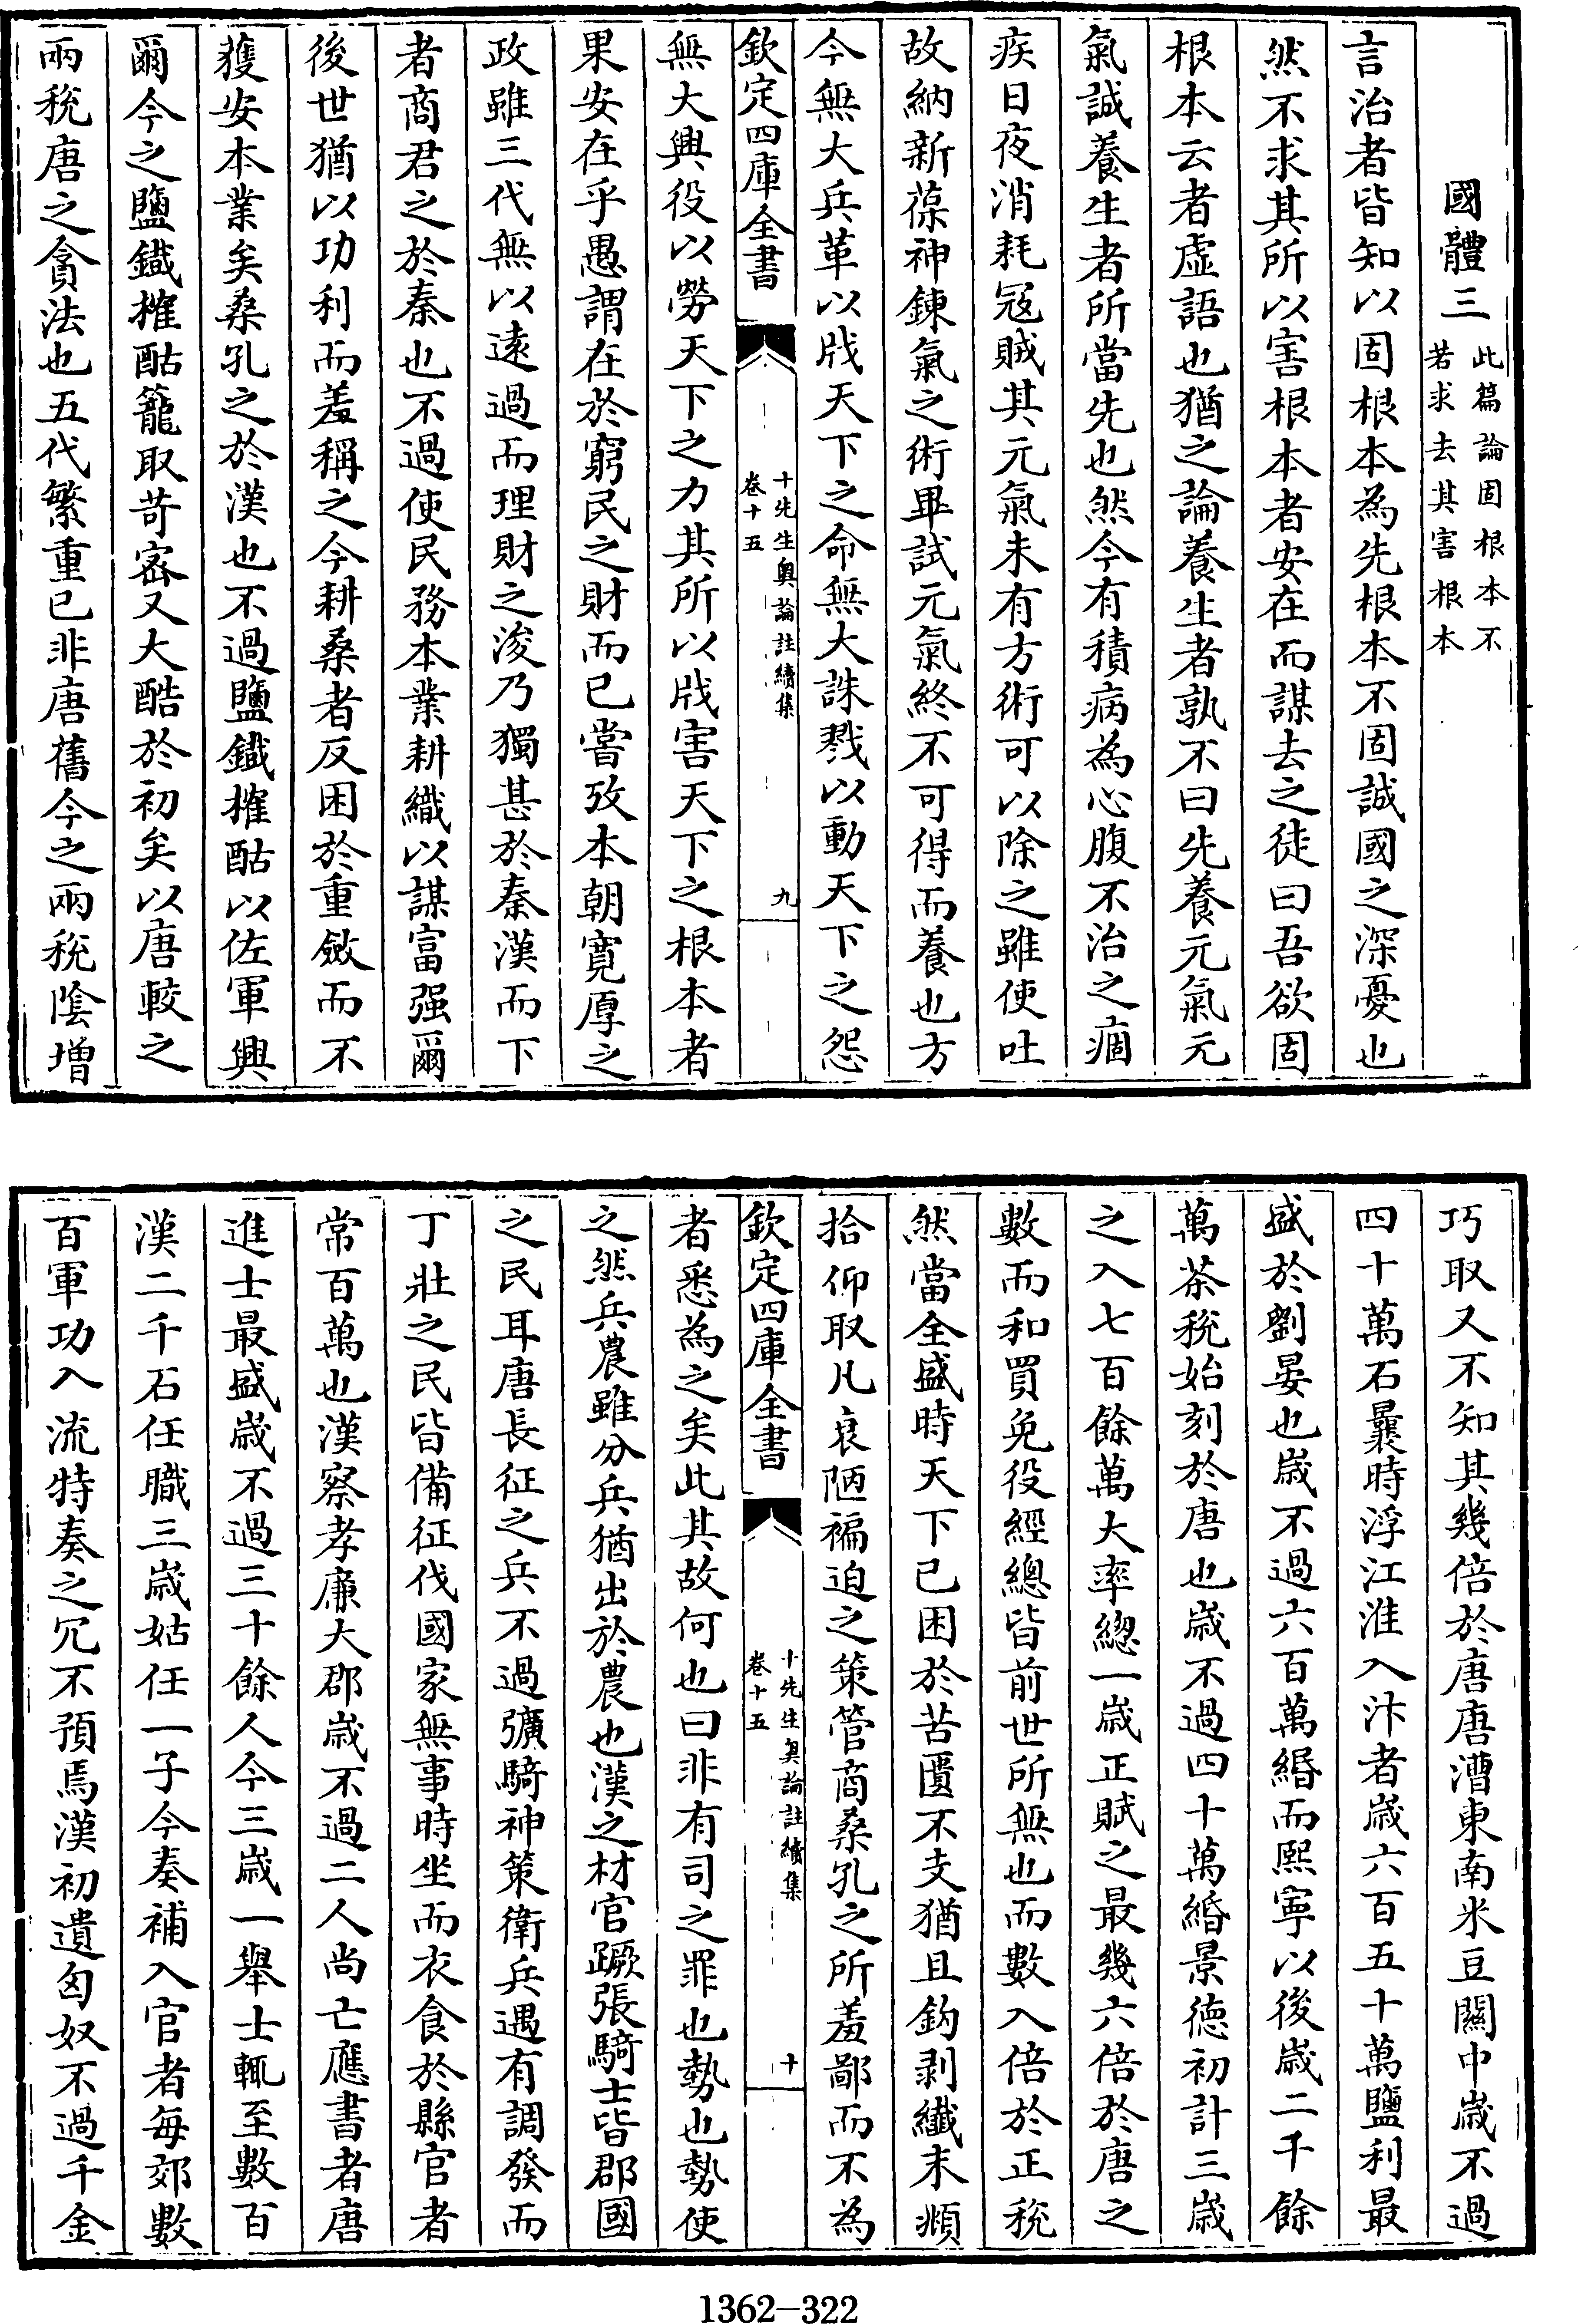 國體三此篇論固根本不若求去其害根本
言治者皆知以固根本為先根本不固誠國之深憂也
然不求其所以害根本者安在而謀去之徒曰吾欲固
根本云者虛語也猶之論養生者孰不曰先養元氣元
氣誠養生者所當先也然今有積病為心腹不治之痼
疾日夜消耗冦賊其元氣未有方術可以除之雖使吐
故納新葆神鍊氣之術畢試元氣終不可得而養也方
今無大兵革以戕天下之命無大誅戮以動天下之怨
欽定四庫全書
十先生奥論註續集
卷十五
九
無大興役以勞天下之力其所以戕害天下之根本者
果安在乎愚謂在於窮民之財而已嘗攷本朝寬厚之
政雖三代無以逺過而理財之浚乃獨甚於秦漢而下
者商君之於秦也不過使民務本業耕織以謀富强爾
後世猶以功利而羞稱之今耕桑者反困於重斂而不
獲安本業矣桑孔之於漢也不過鹽鐡搉酤以佐軍興
爾今之鹽鐡搉酤籠取苛宻又大酷於初矣以唐較之
兩稅唐之貪法也五代繁重已非唐舊今之兩稅隂增
巧取又不知其幾倍於唐唐漕東南米豆關中嵗不過
四十萬石曩時浮江淮入汴者嵗六百五十萬鹽利最
盛於劉晏也嵗不過六百萬緡而熙寧以後嵗二千餘
萬茶稅始刻於唐也嵗不過四十萬緡景德初計三嵗
之入七百餘萬大率總一嵗正賦之最幾六倍於唐之
數而和買免役經總皆前世所無也而數入倍於正稅
然當全盛時天下已困於苦匱不支猶且鈎剥纎末頫
拾仰取凡衰陋褊迫之策管商桑孔之所羞鄙而不為
欽定四庫全書
十先生奥論註續集
卷十五
十
者悉為之矣此其故何也曰非有司之罪也勢也勢使
之然兵農雖分兵猶出於農也漢之材官蹶張騎士皆郡國
之民耳唐長征之兵不過彍騎神策衛兵遇有調發而
丁壯之民皆備征伐國家無事時坐而衣食於縣官者
常百萬也漢察孝廉大郡嵗不過二人尚亡應書者唐
進士最盛嵗不過三十餘人今三嵗一舉士輒至數百
漢二千石任職三嵗姑任一子今奏補入官者每郊數
百軍功入流特奏之冗不預焉漢初遺匈奴不過千金
1362-322